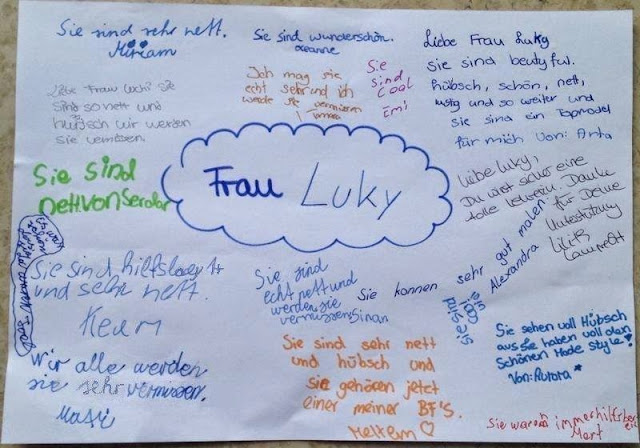 Sie sind sehr nett.
Miriam
Sie sind wunderschön.
Liebe Frau Luky
sie sind beutyful.
hübsch, schön, nett,
lustig und so weiter und
sie sind ein Topmodel
für mich Von: Anta
Ich mag sie
echt sehr und ich
werde sie vermissen
immer
Sie
sind
cool
Emi
Liebe Frau
Sind so nett und
hübsch wir werden
Sie vermissen.
Sie sind
nett. von Serdar
Frau Luky
Liebe Luky,
Du warst schon eine
tolle Lehrerin. Danke
für Deine
Unterstützung
Sie können sehr gut malen
Alexandra
Sie sind
cool
Sie sind
und sehr nett.
Kerem
Sie sind
echt nett und
werden sie
vermissen Sinan
Sie sehen voll Hübsch
aus sie haben voll den
Schönen Mode Style!
Von: Aurora
Sie sind sehr nett
und hübsch und
Sie gehören jetzt
einer meiner BF'S.
Meltem
Wir alle werden
sie sehr vermissen.
Sie waren immer
Mert